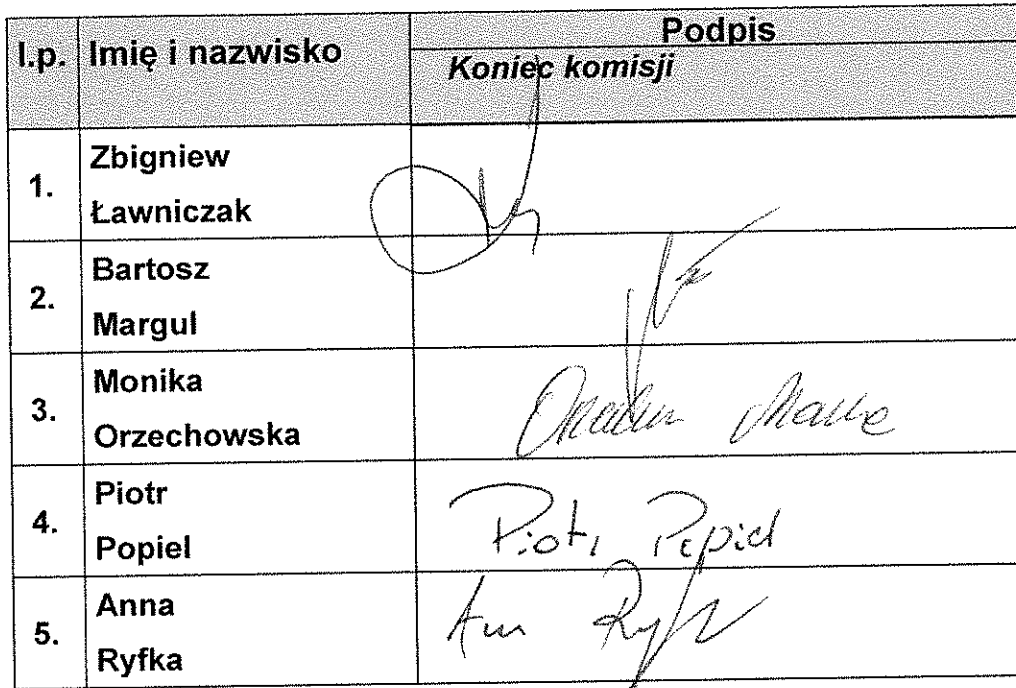 l.p. Imię i nazwisko Podpis
Koniec komisji
1. Zbigniew
Ławniczak
2. Bartosz
Margul
3. Monika
Orzechowska
4. Piotr
Popiel
Piotr Popiel
5. Anna
Ryfka